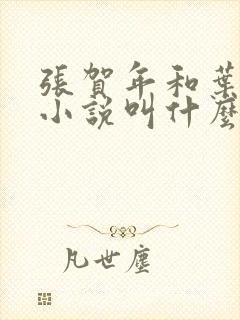 張賀年和葉
小說叫什麼
凡世塵